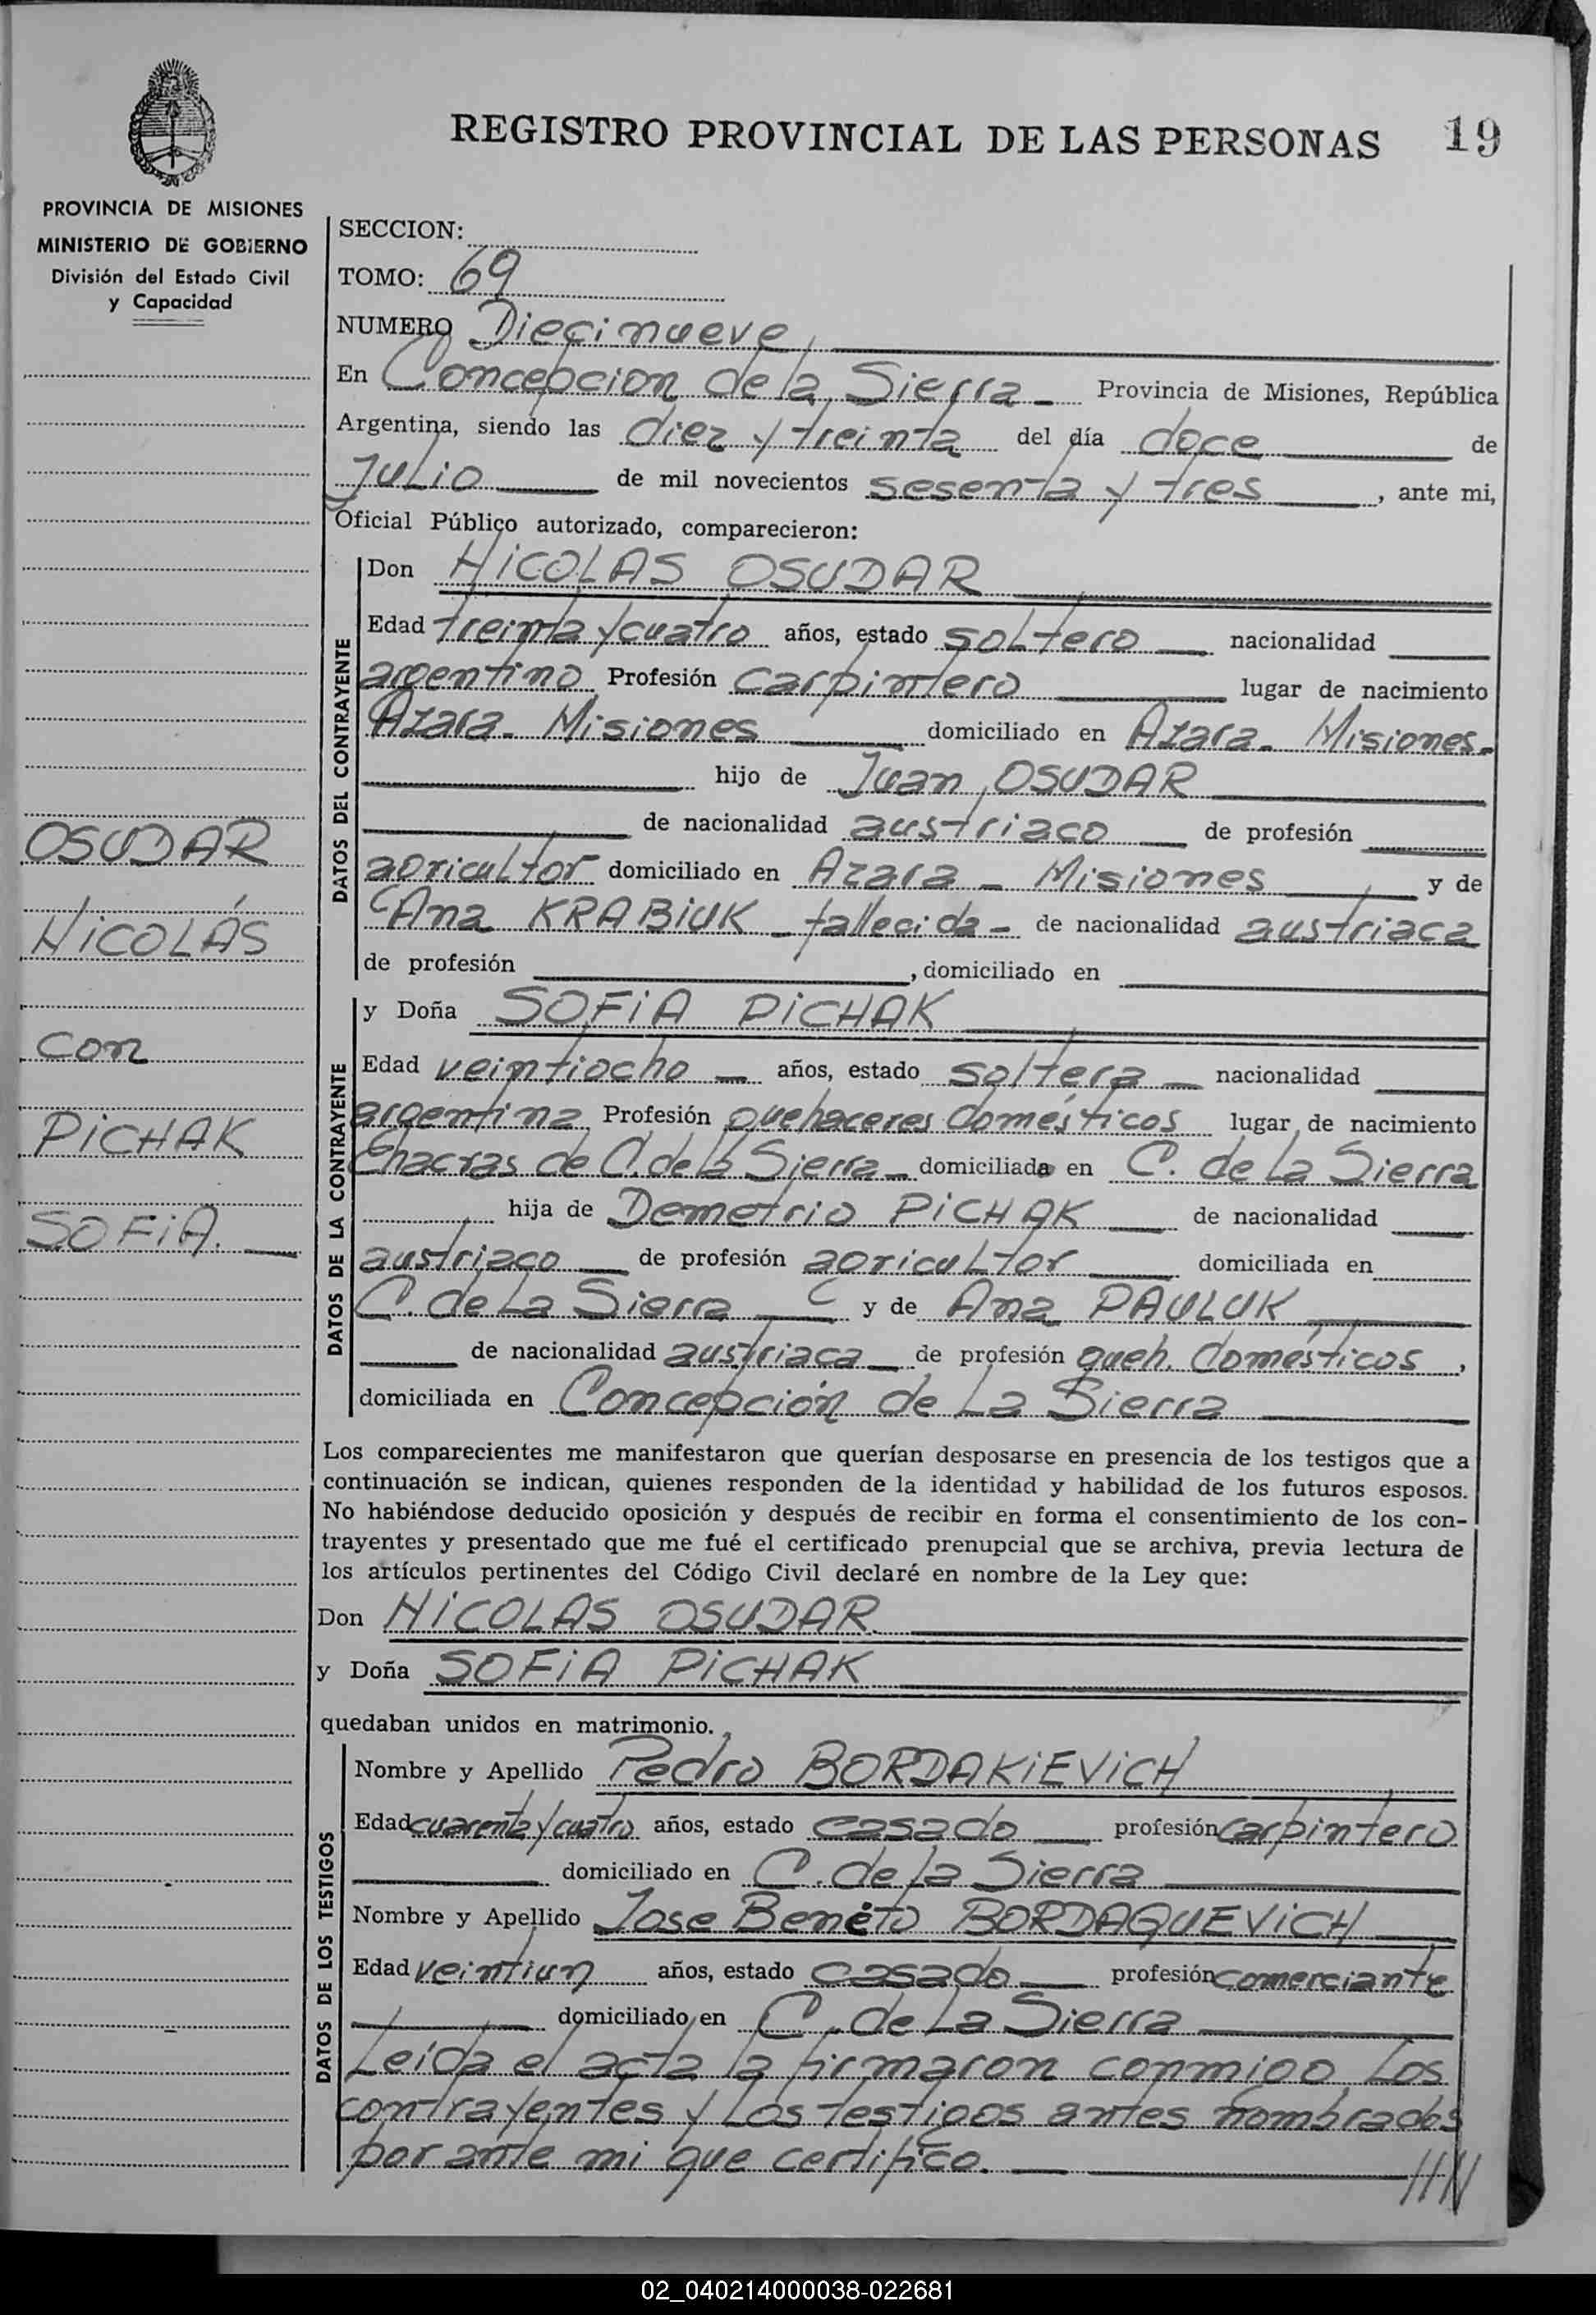 REGISTRO PROVINCIAL DE LAS PERSONAS 19
PROVINCIA DE MISIONES
MINISTERIO DE GOBIERNO
División del Estado Civil
y Capacidad
OSUDAR
NICOLÁS
con
PICHAK
SOFIA.
SECCION:
TOMO: 69
NUMERO Diecinueve
En Concepcion de la Sierra Provincia de Misiones, República
Argentina, siendo las diez y treinta del día doce de
Julio de mil novecientos sesenta y tres, ante mi,
Oficial Público autorizado, comparecieron:
DATOS DEL CONTRAYENTE
Don NICOLAS OSUDAR
Edad treinta y cuatro años, estado soltero nacionalidad
argentino Profesión carpintero lugar de nacimiento
Azara - Misiones domiciliado en Azara - Misiones -
hijo de Juan OSUDAR
de nacionalidad austriaco de profesión
agricultor domiciliado en Azara - Misiones y de
Ana KRABIUK - fallecida - de nacionalidad austriaca
de profesión , domiciliado en
DATOS DE LA CONTRAYENTE
y Doña SOFIA PICHAK
Edad veintiocho años, estado soltera nacionalidad
argentina Profesión quehaceres domésticos lugar de nacimiento
Chacras de C. de la Sierra domiciliada en C. de La Sierra
hija de Demetrio PICHAK de nacionalidad
austriaco de profesión agricultor domiciliada en
C. de La Sierra y de Ana PAULUK
de nacionalidad austriaca de profesión queh. domésticos,
domiciliada en Concepción de La Sierra
Los comparecientes me manifestaron que querían desposarse en presencia de los testigos que a
continuación se indican, quienes responden de la identidad y habilidad de los futuros esposos.
No habiéndose deducido oposición y después de recibir en forma el consentimiento de los con-
trayentes y presentado que me fué el certificado prenupcial que se archiva, previa lectura de
los artículos pertinentes del Código Civil declaré en nombre de la Ley que:
Don NICOLAS OSUDAR
y Doña SOFIA PICHAK
quedaban unidos en matrimonio.
DATOS DE LOS TESTIGOS
Nombre y Apellido Pedro BORDAKIEVICH
Edad cuarenta y cuatro años, estado casado profesión carpintero
domiciliado en C. de la Sierra
Nombre y Apellido Jose Beneto BORDAQUEVICH
Edad veintiun años, estado casado profesión comerciante
domiciliado en C. de La Sierra
Leida el acta la firmaron conmigo los
contrayentes y los testigos antes nombrados
por ante mi que certifico.
02_040214000038-022681